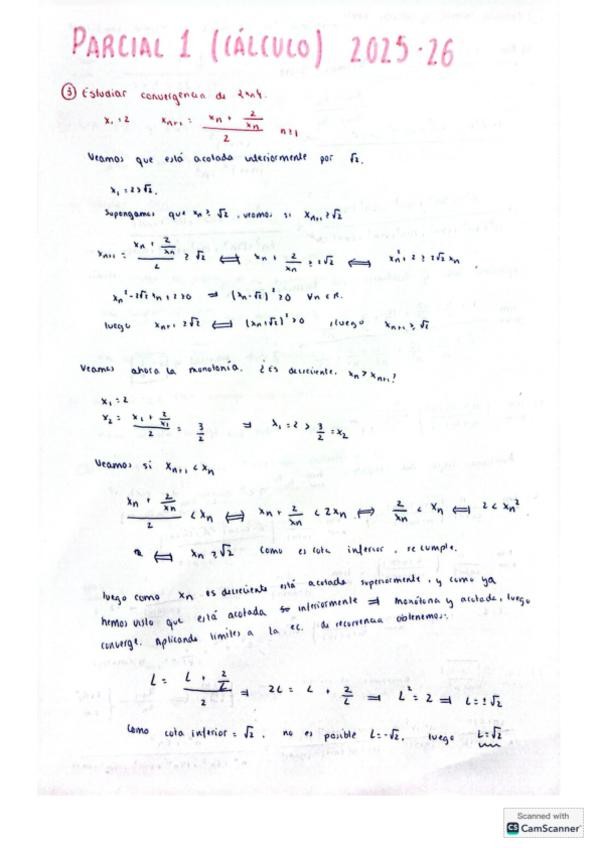 PARCIAL 1 (CÁLCULO) 2025-26
③ Estudiar convergencia de {xn}.
x₁ = 2 xₙ₊₁ = (xₙ + 2/xₙ)/2 n≥1
Veamos que está acotada inferiormente por √2.
x₁ = 2 > √2.
Supongamos que xₙ ≥ √2, veamos si xₙ₊₁ ≥ √2
xₙ₊₁ = (xₙ + 2/xₙ)/2 ≥ √2 ⟺ xₙ + 2/xₙ ≥ 2√2 ⟺ xₙ² + 2 ≥ 2√2 xₙ
xₙ² - 2√2 xₙ + 2 ≥ 0 ⟹ (xₙ - √2)² ≥ 0 ∀n ∈ ℝ.
luego xₙ₊₁ ≥ √2 ⟺ (xₙ-√2)² ≥ 0, luego xₙ₊₁ ≥ √2
Veamos ahora la monotonía. ¿Es decreciente, xₙ > xₙ₊₁?
x₁ = 2
x₂ = (x₁ + 2/x₁)/2 = 3/2 ⟹ x₁ = 2 > 3/2 = x₂
Veamos si xₙ₊₁ < xₙ
(xₙ + 2/xₙ)/2 < xₙ ⟺ xₙ + 2/xₙ < 2xₙ ⟺ 2/xₙ < xₙ ⟺ 2 < xₙ²
⟺ xₙ ≥ √2 como es cota inferior, se cumple.
luego como xₙ es decreciente está acotada superiormente, y como ya
hemos visto que está acotada inferiormente ⟹ monótona y acotada, luego
converge. Aplicando límites a la ec. de recurrencia obtenemos:
L = (L + 2/L)/2 ⟹ 2L = L + 2/L ⟹ L² = 2 ⟹ L = ±√2
Como cota inferior = √2, no es posible L = -√2, luego L = √2
Scanned with
CS CamScanner